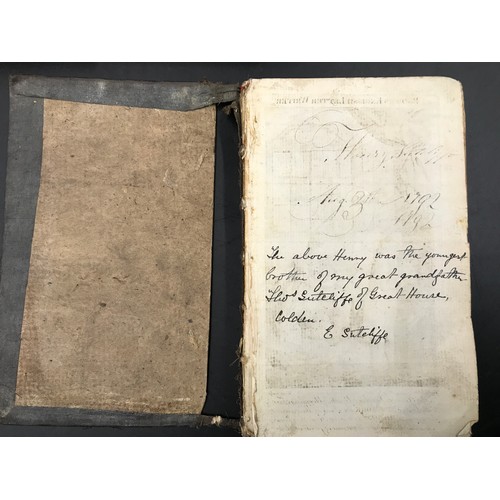 Henry
Aug 1792
The above Henry was the youngest
brother of my great grandfather
Thos Sutcliffe of Great House,
Colden.
E Sutcliffe